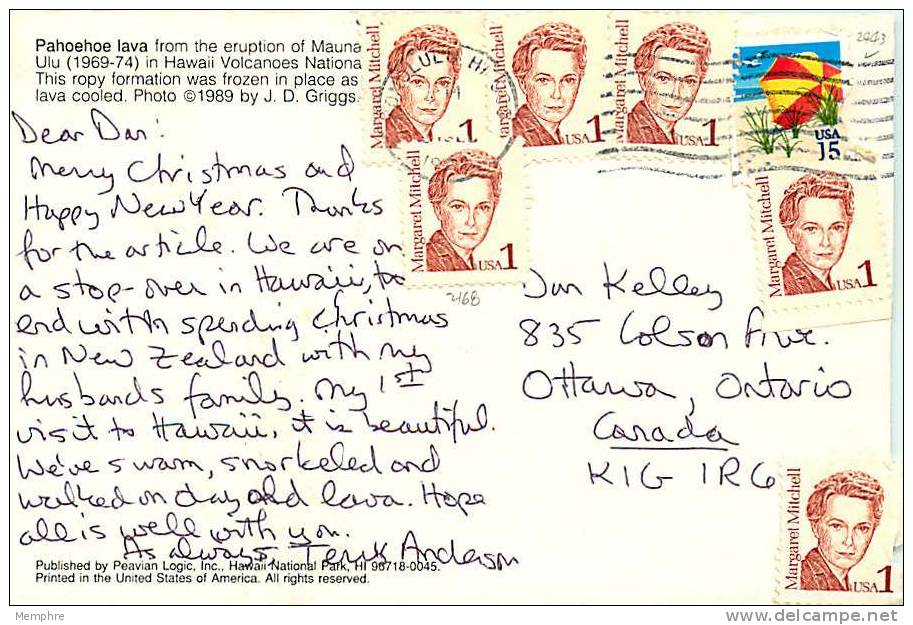 Pahoehoe lava from the eruption of Mauna
Ulu (1969-74) in Hawaii Volcanoes Nationa
This ropy formation was frozen in place as
lava cooled. Photo ©1989 by J. D. Griggs.
Dear Dan!
Merry Christmas and
Happy New Year. Thanks
for the article. We are on
a stop-over in Hawaii, to
end with spending Christmas
in New Zealand with my
husbands family. My 1st
visit to Hawaii, it is beautiful.
We've swam, snorkeled and
walked on day old lava. Hope
all is well with you.
As always, Anderson
Published by Peavian Logic, Inc., Hawaii National Park, HI 96718-0045.
Printed in the United States of America. All rights reserved.
Margaret Mitchell
USA 1
Margaret Mitchell
USA 1
Margaret Mitchell
USA 1
USA
15
2943
Margaret Mitchell
USA 1
2168
Margaret Mitchell
USA 1
Dan Kelley
835 Colson Ave.
Ottawa, Ontario
Canada
K1G 1R6
Margaret Mitchell
USA 1
Memphre
delcampe.net